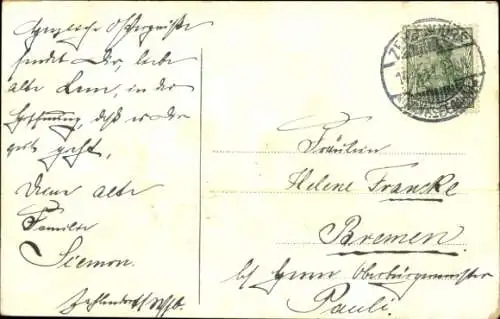 Herzliche Ostergrüße
sendet Dir, liebe
alte Lene, in der
Hoffnung, daß es Dir
gut geht,
Deine alte
Familie
Siemon.
Zehlendorf/Wsb.
Fräulein
Helene Francke
Bremen.
bei Herrn Oberbürgermeister
Pauli.